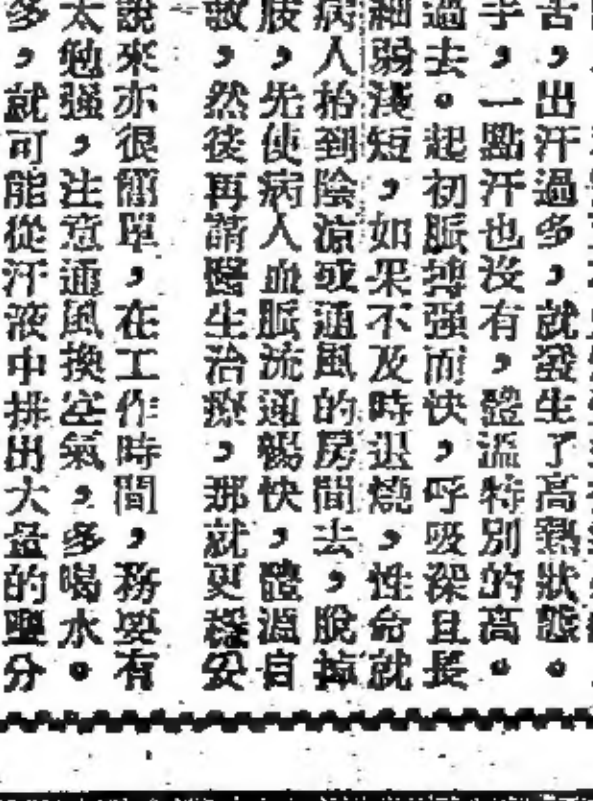 苦，出汗過多，就發生了高熱狀態。
手，一點汗也没有，體溫特別的高。
過去。起初脈搏强而快，呼吸深且長
細弱淺短，如果不及時退燒，性命就
病人抬到陰凉或通風的房間去，脫掉
肢，先使病人血脈流通暢快，體溫自
敏，然後再請醫生治療，那就更穩妥
說來亦很簡單，在工作時間，務要有
太勉强，注意通風換空氣，多喝水。
多，就可能從汗液中排出大量的鹽分